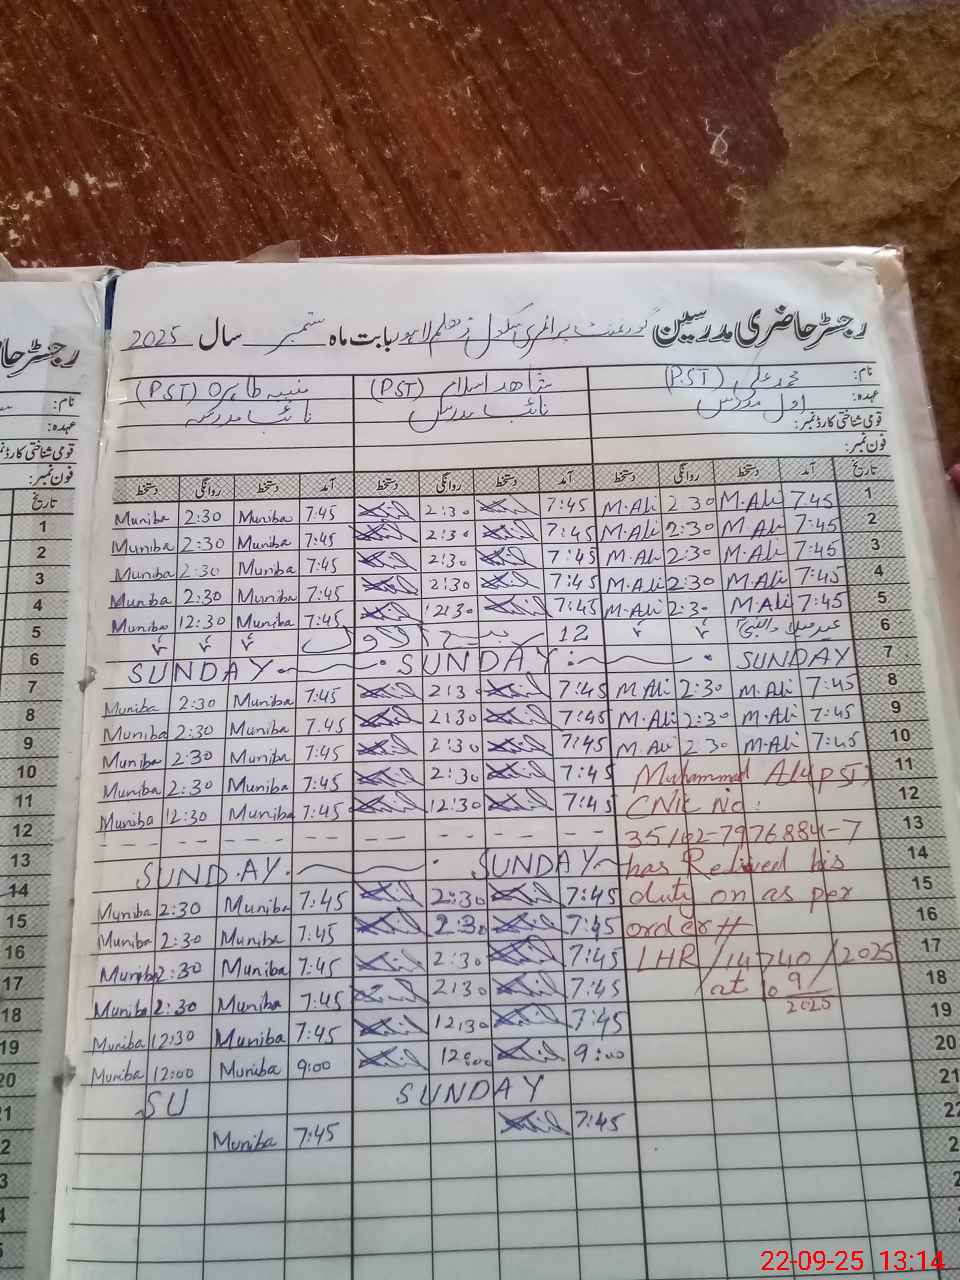 رجسٹر حاضری مدرسین گورنمنٹ پرائمری سکول لاہور بابت ماہ ستمبر سال 2025
نام: محمد علی (PST) شاھد اسلام (PST) منیبہ طاہرہ (PST)
عہدہ: اول مدرس نائب مدرس نائب مدرسہ
قومی شناختی کارڈ نمبر:
فون نمبر:
تاریخ آمد دستخط روانگی دستخط آمد دستخط روانگی دستخط آمد دستخط روانگی دستخط
1 7:45 M.Ali 2:30 M.Ali 7:45 2:30 7:45 Muniba 2:30 Muniba
2 7:45 M.Ali 2:30 M.Ali 7:45 2:30 7:45 Muniba 2:30 Muniba
3 7:45 M.Ali 2:30 M.Ali 7:45 2:30 7:45 Muniba 2:30 Muniba
4 7:45 M.Ali 2:30 M.Ali 7:45 2:30 7:45 Muniba 2:30 Muniba
5 7:45 M.Ali 2:30 M.Ali 7:45 12:30 7:45 Muniba 12:30 Muniba
6 عید میلاد النبیؐ 12 ربیع الاول
7 SUNDAY SUNDAY SUNDAY
8 7:45 M.Ali 2:30 M.Ali 7:45 2:30 7:45 Muniba 2:30 Muniba
9 7:45 M.Ali 2:30 M.Ali 7:45 2:30 7:45 Muniba 2:30 Muniba
10 7:45 M.Ali 2:30 M.Ali 7:45 2:30 7:45 Muniba 2:30 Muniba
11 Muhammad Ali (PST) 7:45 2:30 7:45 Muniba 2:30 Muniba
12 CNIC No: 7:45 12:30 7:45 Muniba 12:30 Muniba
13 - - - - - - - -
14 has Relieved his SUNDAY SUNDAY
15 duty on as per 7:45 2:30 7:45 Muniba 2:30 Muniba
16 order # 7:45 2:30 7:45 Muniba 2:30 Muniba
17 LHR/14740/2025 7:45 2:30 7:45 Muniba 2:30 Muniba
18 at 9/2025 7:45 2:30 7:45 Muniba 2:30 Muniba
19 7:45 12:30 7:45 Muniba 12:30 Muniba
20 9:00 12:00 9:00 Muniba 12:00 Muniba
21 SUNDAY SU
22 7:45 7:45 Muniba
رجسٹر حا
نام:
عہدہ:
قومی شناختی کارڈ نمبر
فون نمبر:
تاریخ
1
2
3
4
5
6
7
8
9
10
11
12
13
14
15
16
17
18
19
20
22-09-25 13:14